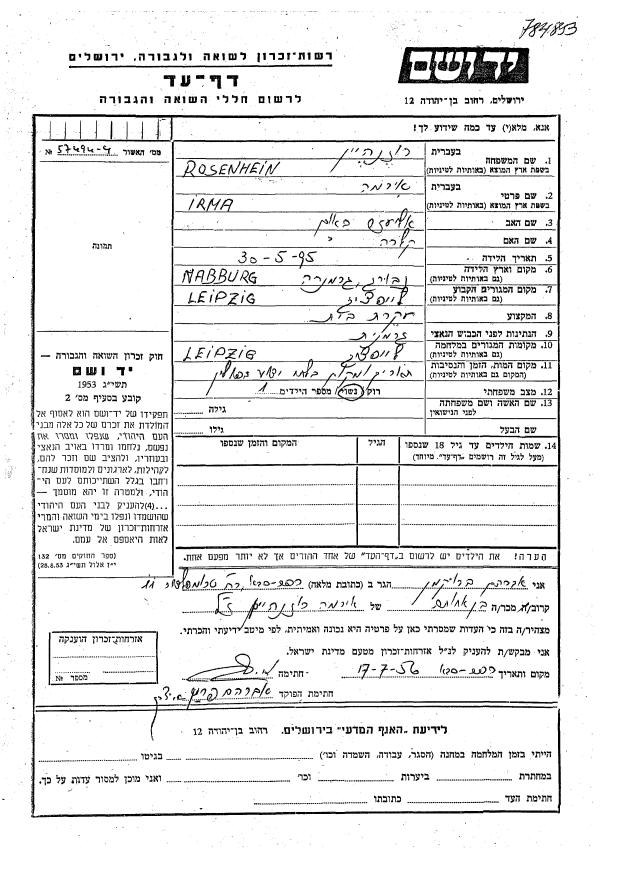 784853
יד ושם
ירושלים, רחוב בן־יהודה 12
רשות־זכרון לשואה ולגבורה, ירושלים
דף־עד
לרשום חללי השואה והגבורה
מס׳ האשור 57494-4 №
אנא, מלא(י) עד כמה שידוע לך!
1. שם המשפחה בעברית רוזנהיין
בשפת ארץ המוצא (באותיות לטיניות) ROSENHEIN
2. שם פרטי בעברית אירמה
בשפת ארץ המוצא (באותיות לטיניות) IRMA
3. שם האב
4. שם האם קלרה
5. תאריך הלידה 30-5-95
6. מקום וארץ הלידה נבורג, גרמניה
(גם באותיות לטיניות) NABBURG
7. מקום המגורים הקבוע לייפציג
(גם באותיות לטיניות) LEIPZIG
8. המקצוע עקרת בית
9. הנתינות לפני הכבוש הנאצי גרמנית
10. מקומות המגורים במלחמה לייפציג
(גם באותיות לטיניות) LEIPZIG
11. מקום המות, הזמן והנסיבות תאריך ומקום בלתי ידוע
(המקום גם באותיות לטיניות)
12. מצב משפחתי רוק, נשוי, מספר הילדים 1
13. שם האשה ושם משפחתה
לפני הנישואין
גילה
שם הבעל
גילו
14. שמות הילדים עד גיל 18 שנספו
(מעל לגיל זה רושמים "דף־עד" מיוחד)
הגיל
המקום והזמן שנספו
הערה! את הילדים יש לרשום ב"דף־העד" של אחד ההורים אך לא יותר מפעם אחת.
תמונה
חוק זכרון השואה והגבורה —
יד ושם
תשי״ג 1953
קובע בסעיף מס׳ 2
תפקידו של יד־ושם הוא לאסוף אל
המולדת את זכרם של כל אלה מבני
העם היהודי, שנפלו ומסרו את
נפשם, נלחמו ומרדו באויב הנאצי
ובעוזריו, ולהציב שם וזכר להם,
לקהילות, לארגונים ולמוסדות שנח־
רבו בגלל השתייכותם לעם הי־
הודי, ולמטרה זו יהא מוסמך —
...(4)להעניק לבני העם היהודי
שהושמדו ונפלו בימי השואה והמרי
אזרחות־זכרון של מדינת ישראל
לאות היאספם אל עמם.
(ספר החוקים מס׳ 132
י״ז אלול תשי״ג 28.8.53)
אני אברהם הגר ב (כתובת מלאה)
קרוב/ה, מכר/ה של אירמה רוזנהיין ז״ל
מצהיר/ה בזה כי העדות שמסרתי כאן על פרטיה היא נכונה ואמיתית, לפי מיטב ידיעתי והכרתי.
אני מבקש/ת להעניק לנ״ל אזרחות־זכרון מטעם מדינת ישראל.
מקום ותאריך 17-7-56 חתימה
חתימת הפוקד
אזרחות־זכרון הוענקה
מספר №
לידיעת "האגף המדעי" בירושלים, רחוב בן־יהודה 12
הייתי בזמן המלחמה במחנה (הסגר, עבודה, השמדה וכו׳) בגיטו
במחתרת ביערות וכו׳ ואני מוכן למסור עדות על כך.
חתימת העד כתובתו